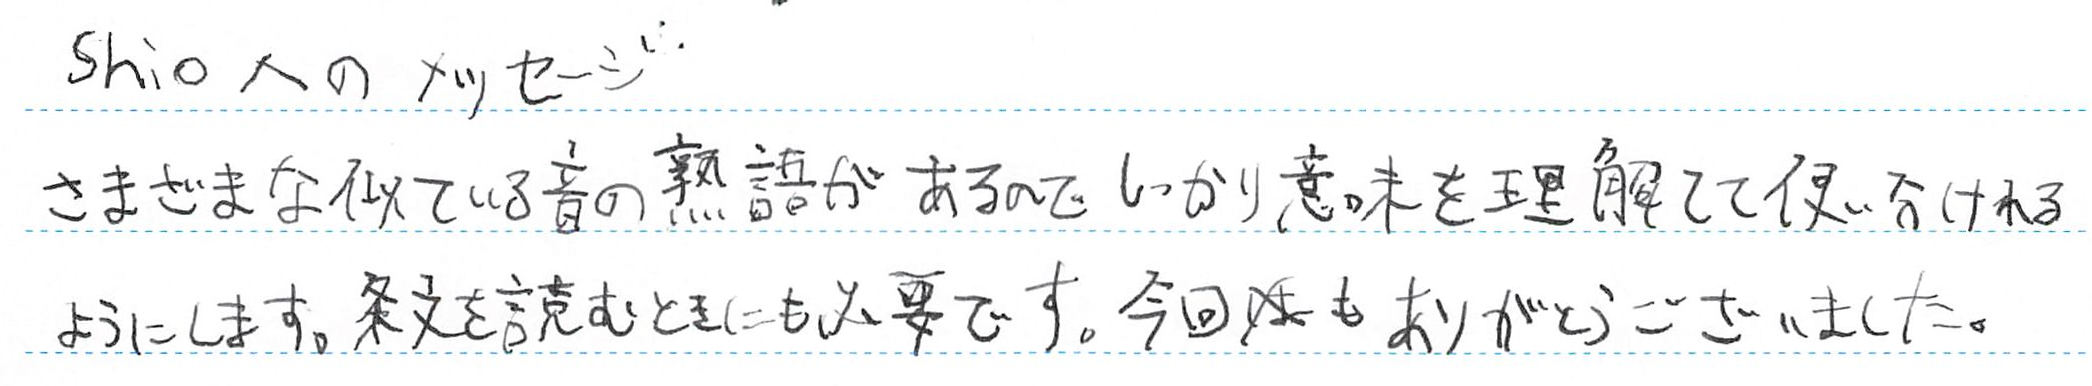 Shioへのメッセージ
さまざまな似ている音の熟語があるのでしっかり意味を理解して使い分けれる
ようにします。条文を読むときにも必要です。今回もありがとうございました。